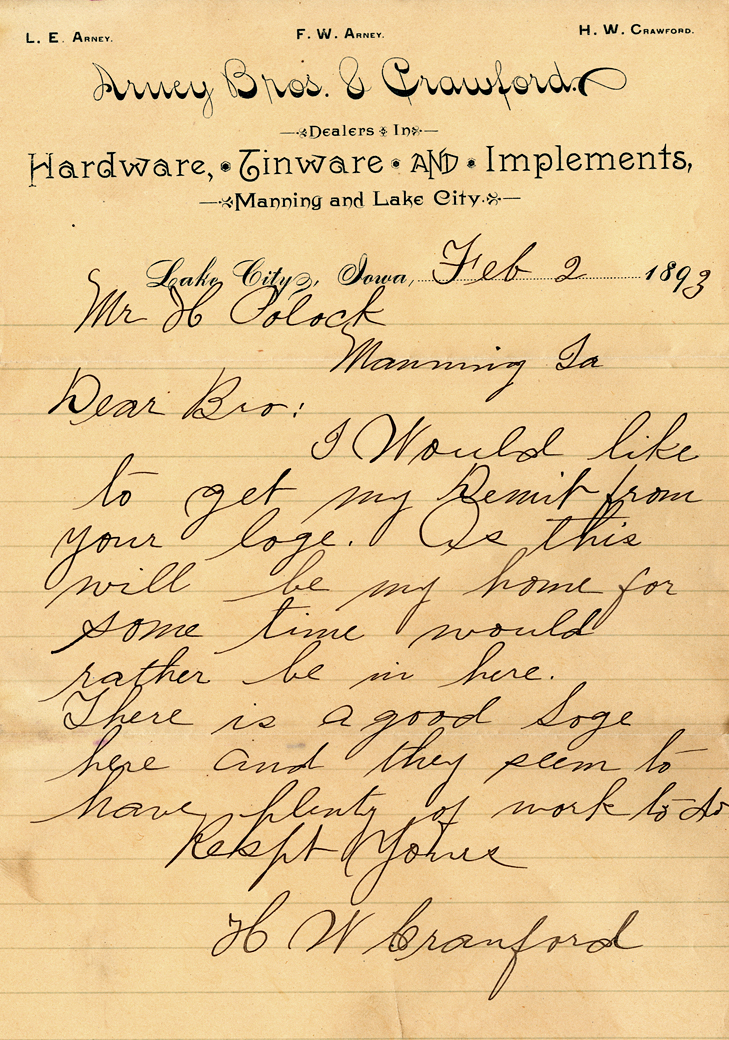 L. E. Arney. F. W. Arney. H. W. Crawford.
Arney Bros. & Crawford.
Dealers In
Hardware, Tinware AND Implements,
Manning and Lake City.
Lake City, Iowa, Feb 2 1893
Mr H Polock
Manning Ia
Dear Bro:
I Would like
to get my Demit from
your loge. As this
will be my home for
some time would
rather be in here.
There is a good Loge
here and they seem to
have plenty of work to do
Respt Yours
H W Cranford